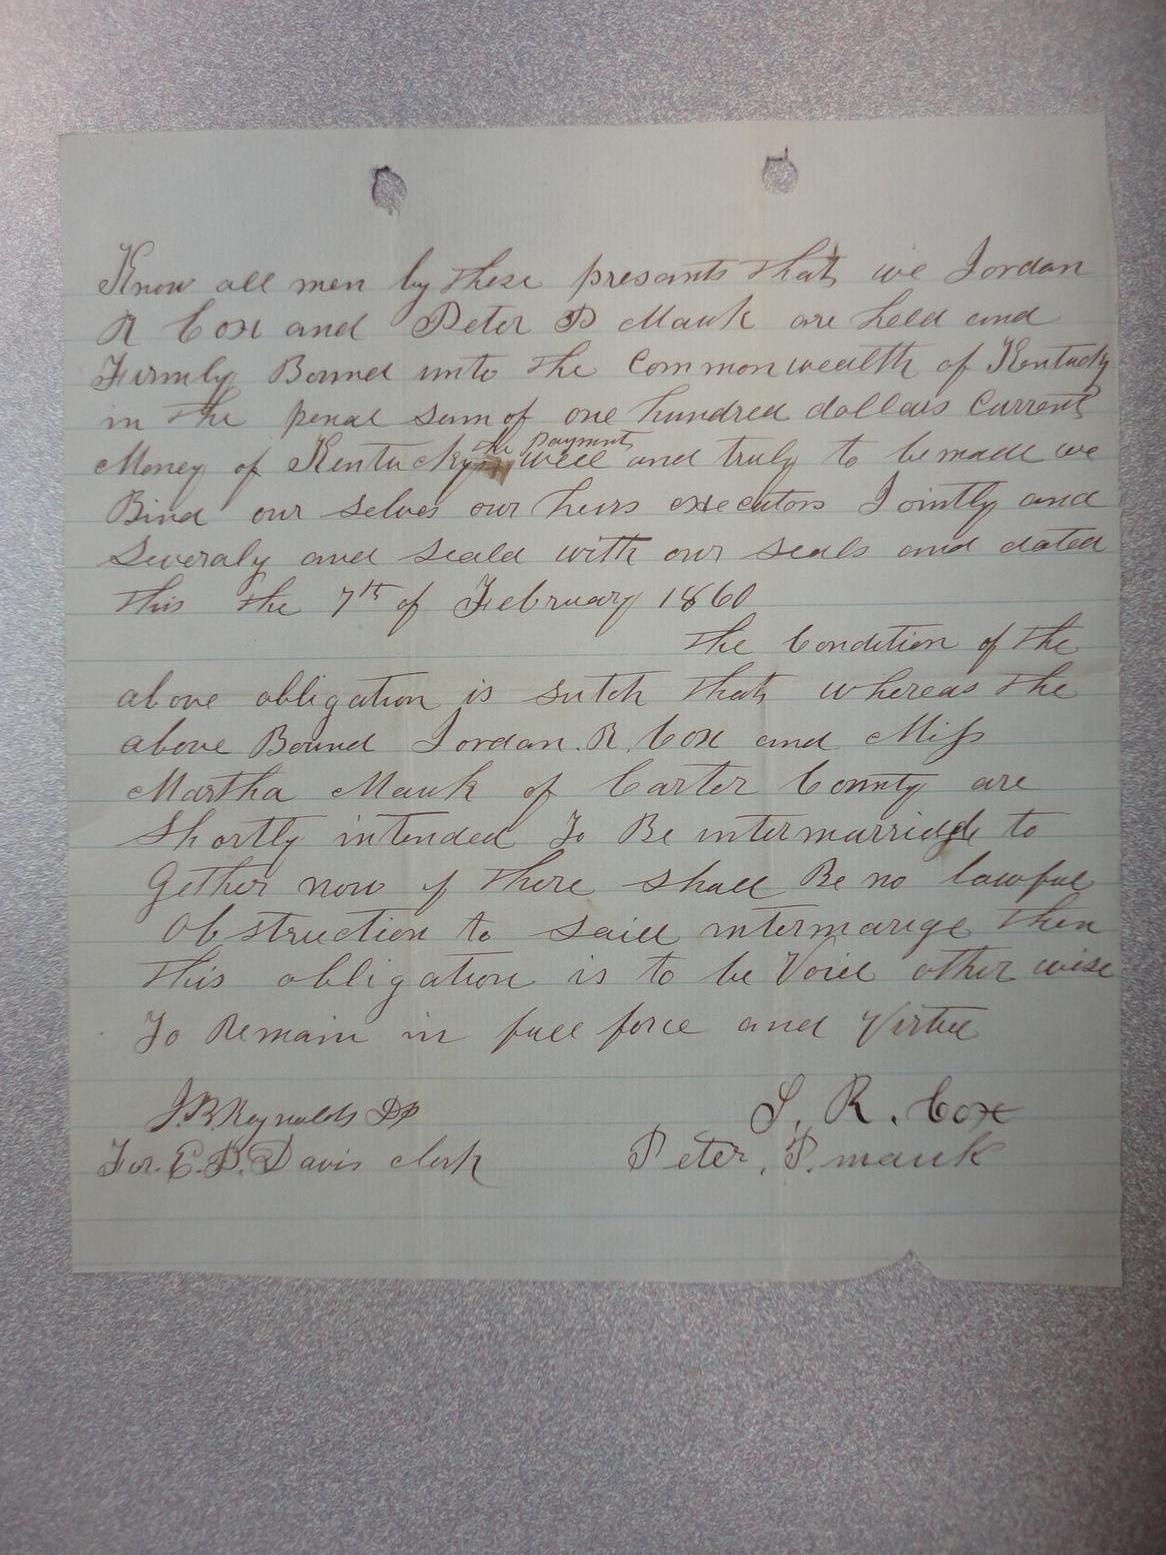 Know all men by these presants that we Jordan
R Cox and Peter P Mauk are held and
Firmly Bound unto the Commonwealth of Kentucky
in the penal sum of one hundred dollars Current
the payment
Money of Kentucky well and truly to be made we
Bind our selves our heirs executors Jointly and
Severaly and seald with our seals and dated
this the 7th of February 1860
The Condition of the
above obligation is sutch that whereas the
above Bound Jordan. R. Cox and Miss
Martha Mauk of Carter County are
Shortly intended To Be intermarridge to
Gether now if there shall Be no lawful
Obstruction to said intermarige then
this obligation is to be Void other wise
To Remain in full force and Virtue
J. R. Cox
J. B Reynolds
Peter. P. mauk
For. E. B. Davis clerk